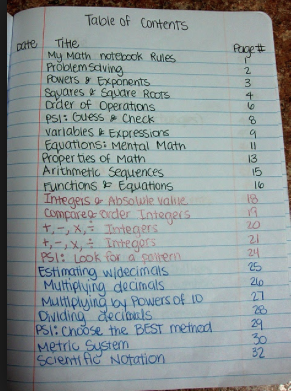 Table of Contents
Date Title Page#
My Math notebook Rules 1
Problem Solving 2
Powers & Exponents 3
Squares & Square Roots 4
Order of Operations 6
PSI: Guess & Check 8
Variables & Expressions 9
Equations: Mental Math 11
Properties of Math 13
Arithmetic Sequences 15
Functions & Equations 16
Integers & Absolute value 18
Compare & order Integers 19
+, -, x, ÷ Integers 20
+, -, x, ÷ Integers 21
PSI: Look for a pattern 24
Estimating w/decimals 25
Multiplying decimals 26
Multiplying by Powers of 10 27
Dividing decimals 28
PSI: Choose the BEST method 29
Metric System 30
Scientific Notation 32